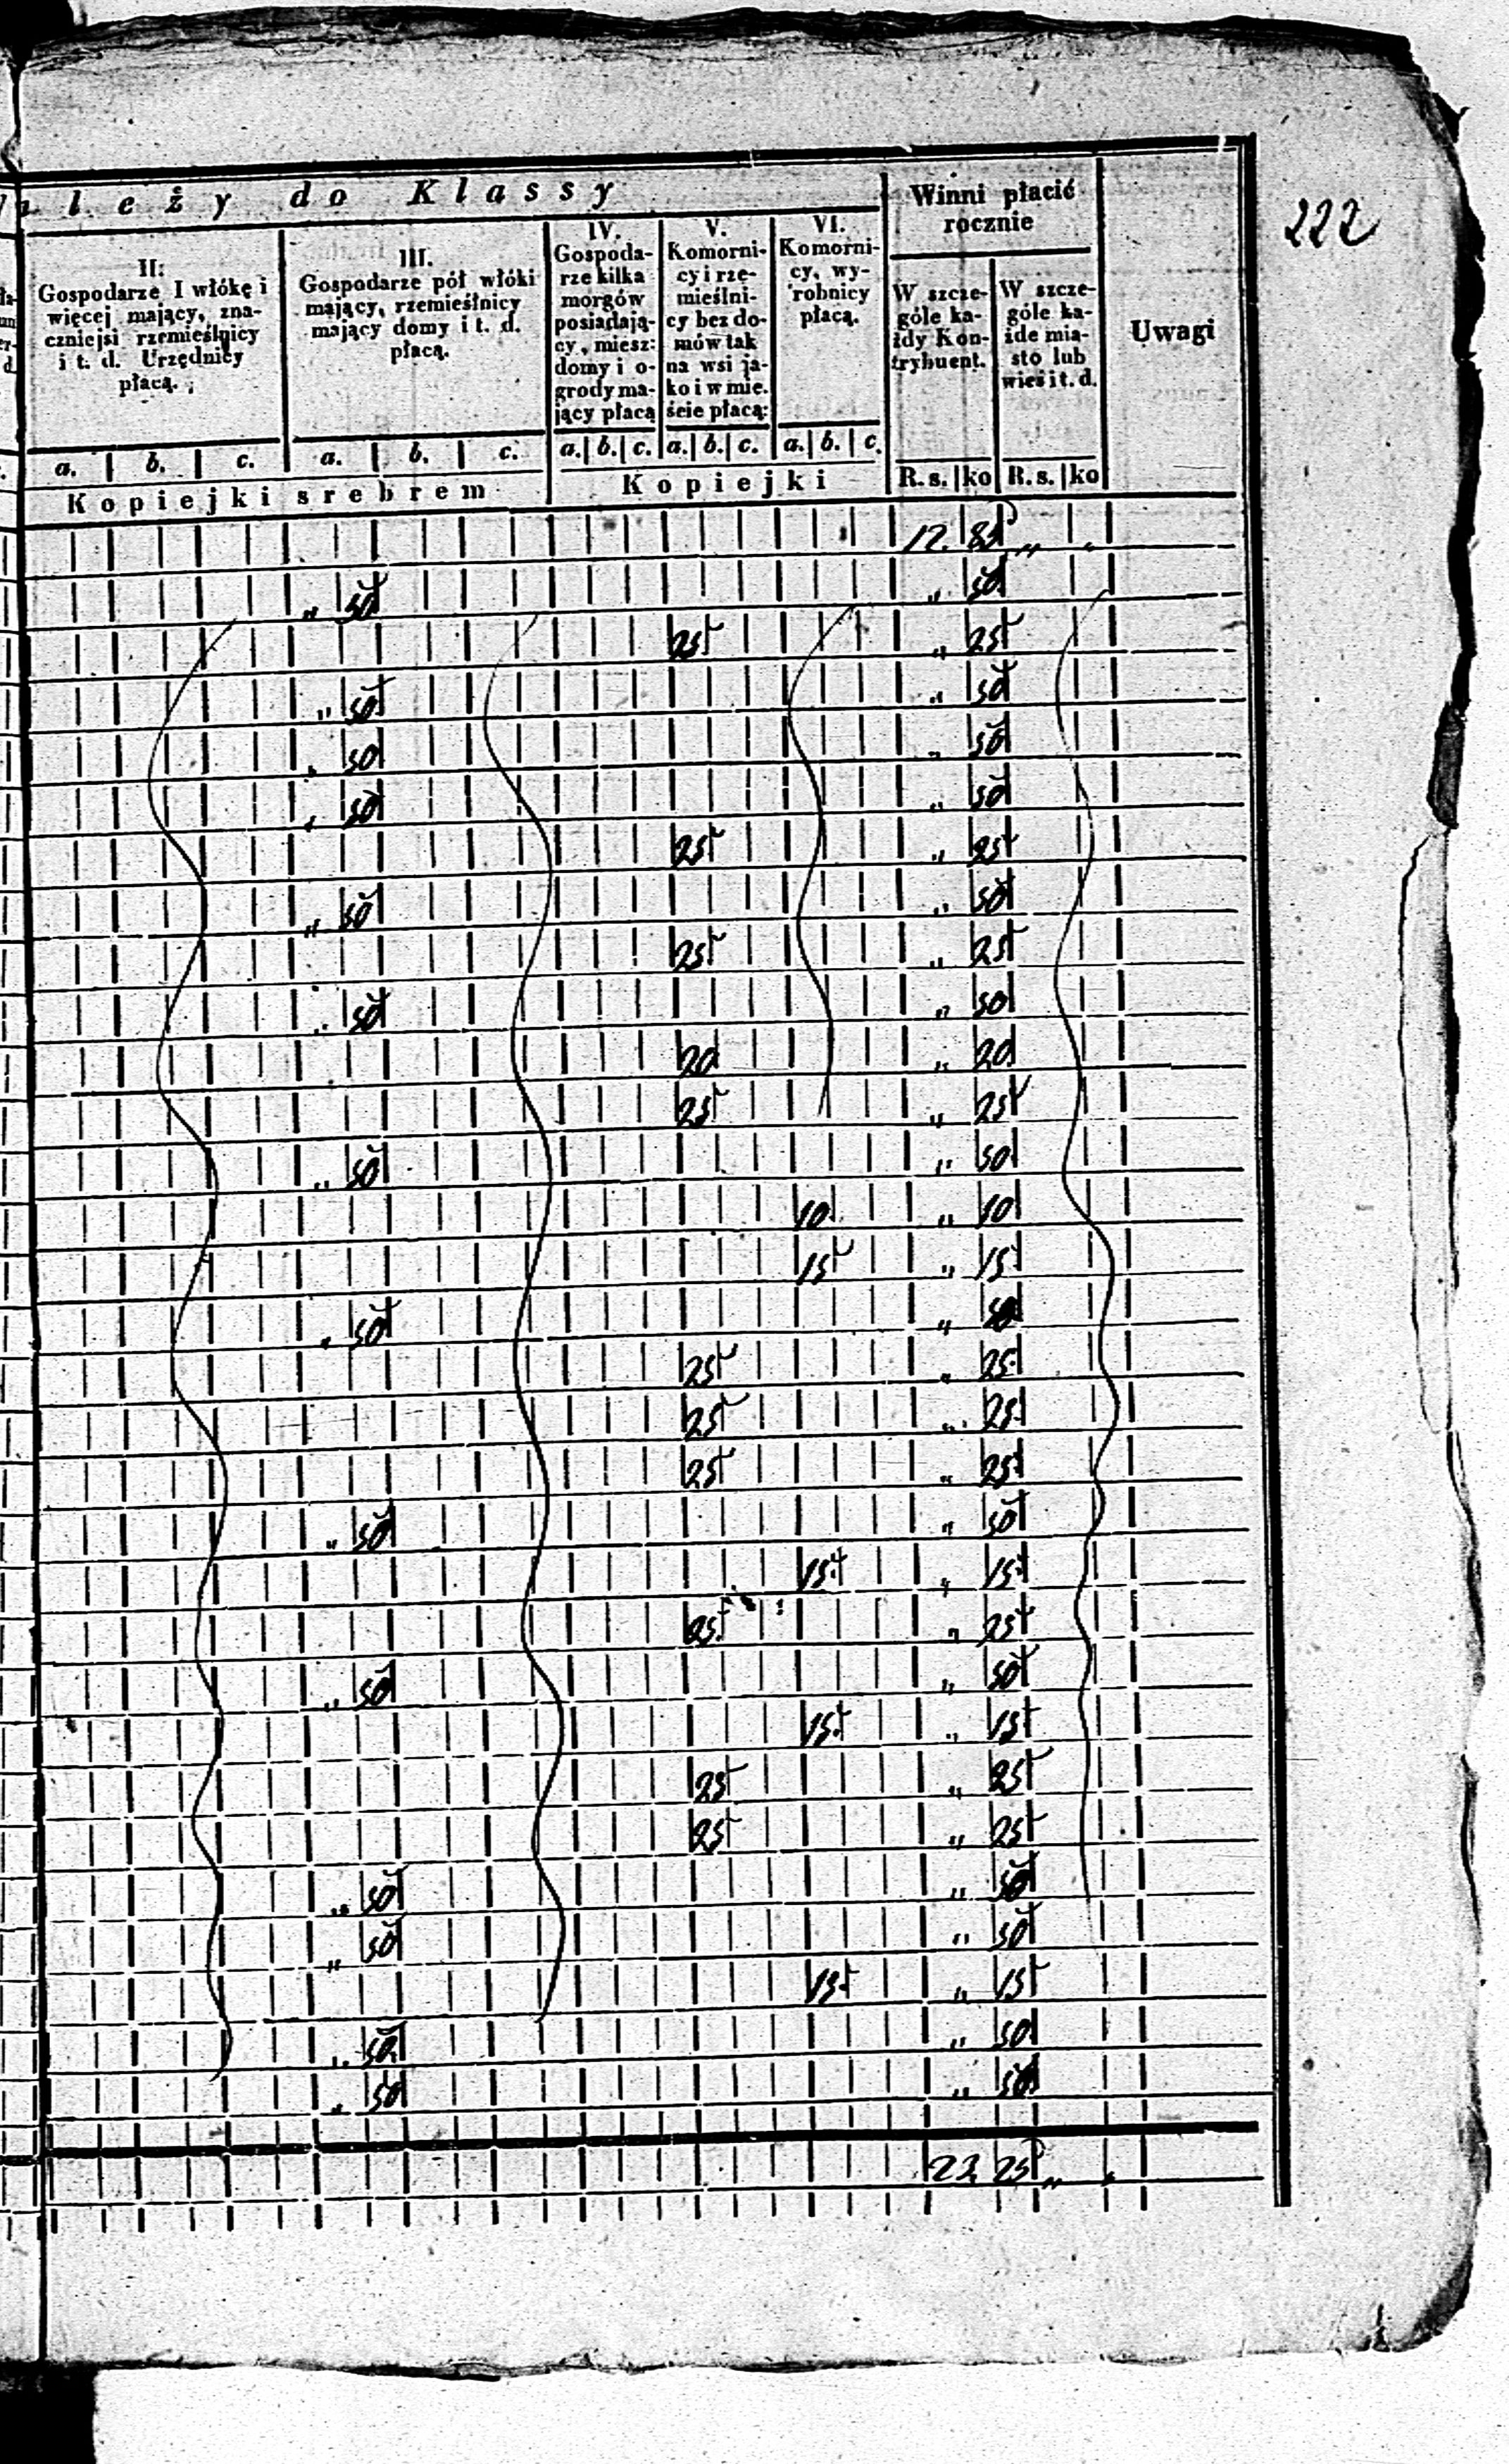 222
ależy do Klassy
Winni płacić
rocznie
Uwagi
II.
Gospodarze I włókę i
więcej mający, zna-
czniejsi rzemieślnicy
i t. d. Urzędnicy
płacą.
III.
Gospodarze pół włóki
mający, rzemieślnicy
mający domy i t. d.
płacą.
IV.
Gospoda-
rze kilka
morgów
posiadają-
cy, miesz:
domy i o-
grody ma-
jący płacą
V.
Komorni-
cy i rze-
mieślni-
cy bez do-
mów tak
na wsi ja-
ko i w mie.
ście płacą:
VI.
Komorni-
cy, wy-
robnicy
płacą.
W szcze-
góle ka-
żdy Kon-
trybuent.
W szcze-
góle ka-
żde mia-
sto lub
wieś i t. d.
a. b. c. a. b. c. a. b. c. a. b. c. a. b. c.
Kopiejki srebrem Kopiejki R. s. ko R. s. ko
12. 85 „ „
„ 50 „ 50
25 „ 25
„ 50 „ 50
„ 50 „ 50
„ 50 „ 50
25 „ 25
„ 50 „ 50
25 „ 25
„ 50 „ 50
20 „ 20
25 „ 25
„ 50 „ 50
10 „ 10
15 „ 15
„ 50 „ 50
25 „ 25
25 „ 25
25 „ 25
„ 50 „ 50
15 „ 15
25 „ 25
„ 50 „ 50
15 „ 15
25 „ 25
25 „ 25
„ 50 „ 50
„ 50 „ 50
15 „ 15
„ 50 „ 50
„ 50 „ 50
23 25 „ „